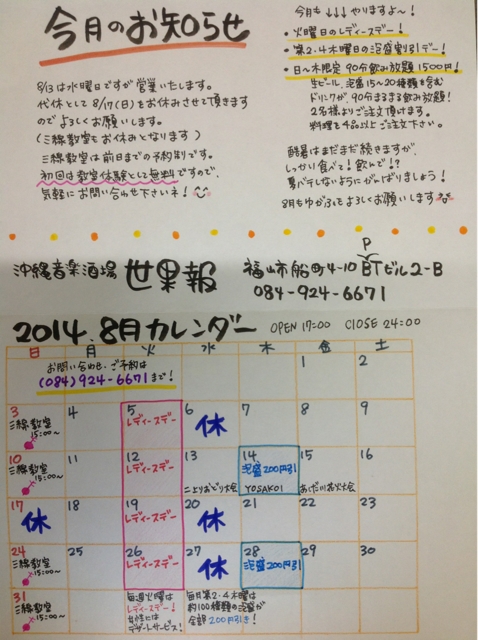 今月のお知らせ
8/13は水曜日ですが営業いたします。
代休として8/17(日)をお休みさせて頂きます
のでよろしくお願いします。
(三線教室もお休みとなります)
三線教室は前日までの予約制です。
初回は教室体験として無料ですので、
気軽にお問い合わせ下さいネ!
今月も↓↓↓やりますよ〜!
・火曜日のレディースデー!
・第2.4木曜日の泡盛割引デー!
・日〜木限定 90分飲み放題1500円!
生ビール、泡盛15〜20種類を含む
ドリンクが、90分まるまる飲み放題!
2名様よりご注文頂けます。
料理を4品以上ご注文下さい。
酷暑はまだまだ続きますが、
しっかり食べて!飲んで!?
夏バテしないようにがんばりましょう!
8月もゆがふをよろしくお願いします
沖縄音楽酒場 世果報
福山市船町4-10 BTビル2-B
P
084-924-6671
2014.8月カレンダー OPEN 17:00 CLOSE 24:00
日 月 火 水 木 金 土
お問い合わせ・ご予約は
(084)924-6671まで!
1 2
3 4 5 6 7 8 9
三線教室
15:00〜
レディースデー
休
10 11 12 13 14 15 16
三線教室
15:00〜
レディースデー
二上りおどり大会
泡盛200円引
YOSAKOI
あしだ川花火大会
17 18 19 20 21 22 23
休
レディースデー
休
24 25 26 27 28 29 30
三線教室
15:00〜
レディースデー
休
泡盛200円引
31
三線教室
15:00〜
毎週火曜は
レディースデー!
女性には
デザートサービス!
毎月第2.4木曜は
約100種類の泡盛が
全部200円引き!